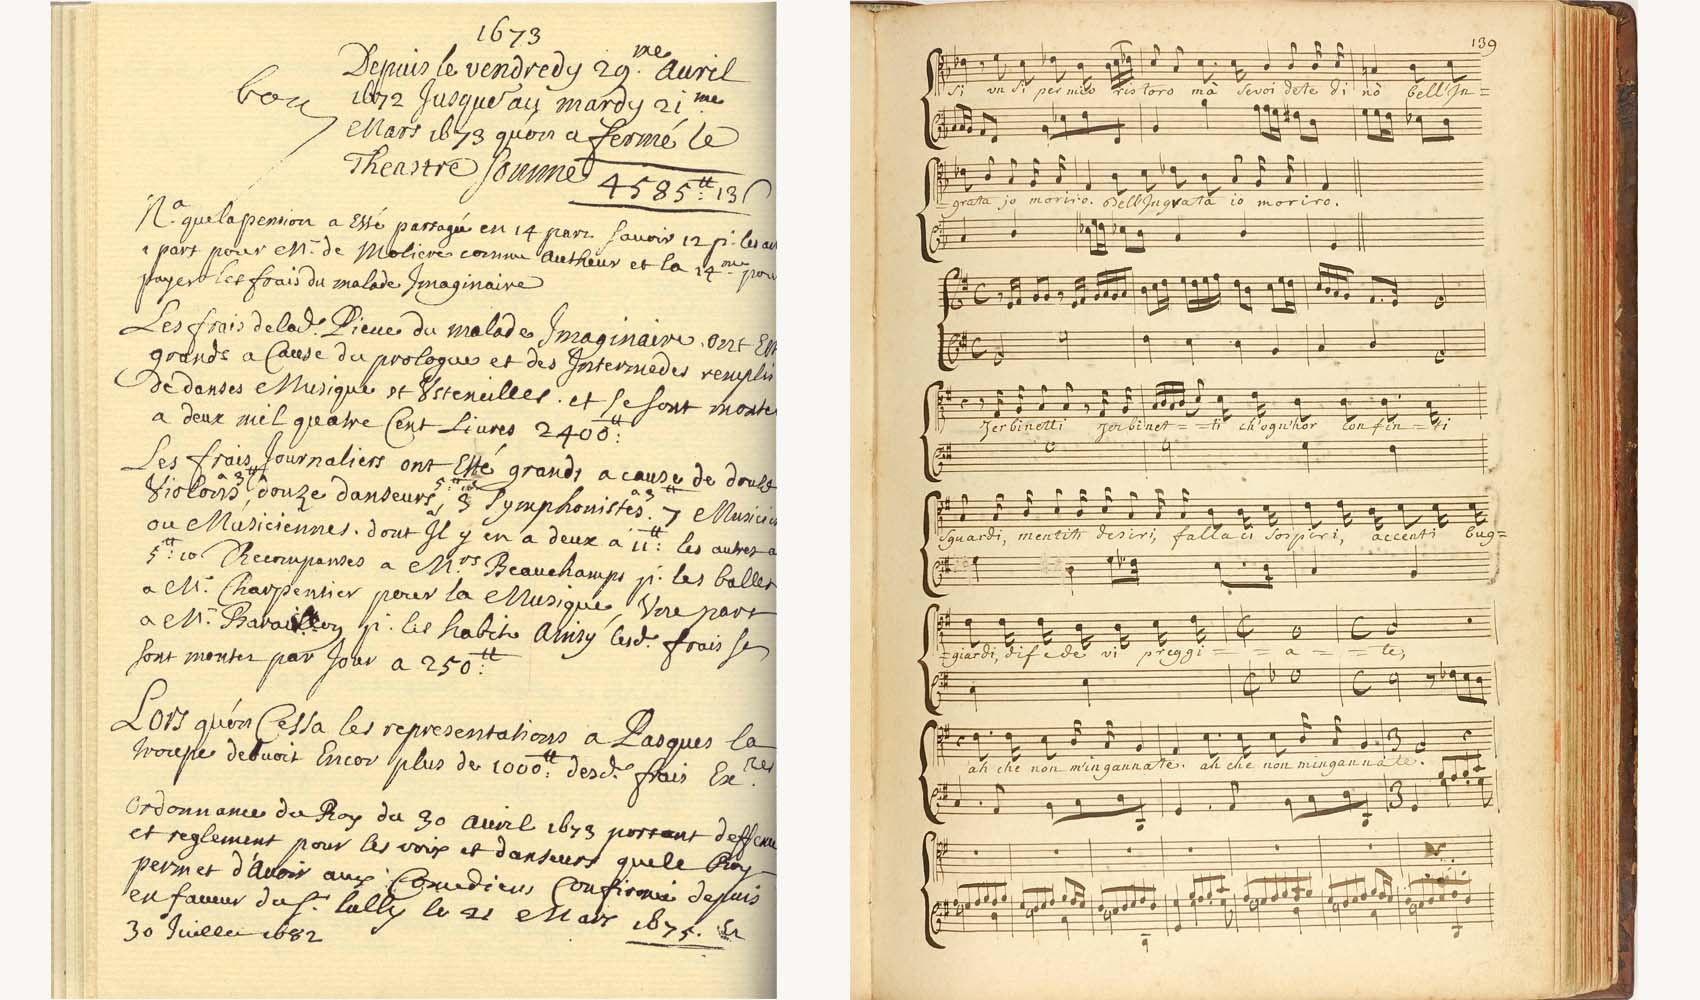 1673
Depuis le vendredy 29.me Auril
1672 Jusques au mardy 21me
Mars 1673 qu'on a fermé le
Theastre Somme 4585tt 13
bon
Na. que la pension a Esté partagée en 14 parts Sauoir 12 pr. les
1 part pour Mr. de Moliere comme Autheur et la 14me pour
payer les frais du malade Imaginaire
Les frais de lad. Piece du malade Imaginaire ont
grands a Cause du prologue et des Intermedes remplis
de danses Musique et Vstencilles. et se sont monté
a deux mil quatre Cent Liures 2400tt:
Les frais Journaliers ont Esté grands a cause de
Violons a 3tt douze danseurs 3 Symphonistes a 3tt 7
ou Musiciennes. dont Il y en a deux a 11tt: les autres a
5tt: 10 Recompanses a Mrs Beauchamps pr. les ballets
a Mr. Charpentier pour la Musique, Vne part
a Mr. pr. les habits Ainsy lesd. frais se
sont montez par Jour a 250tt:
Lors qu'on Cessa les representations a Pasques la
troupe debuoit Encor plus de 1000tt: desd. frais Exres.
Ordonnance du Roy du 30 Auril 1673 portant
et reglement pour les voix et danseurs que le Roy
permet d'Auoir aux Comediens Confirmée depuis
en faueur du Sr. Lully le 21 Mars 1675.
30 Juillet 1682
139
Si un Si per mio ristoro mà Se voi dete di nò bell'In=
=grata io moriro. bell'Ingrata io moriro.
Zerbinetti Zerbinet==ti ch'ogn'hor con fin=ti
Sguardi, mentiti desiri, fallaci Sospiri, accenti bug=
=giardi, di fede vi preggi==a==te,
ah che non m'ingannate. ah che non m'ingannate.